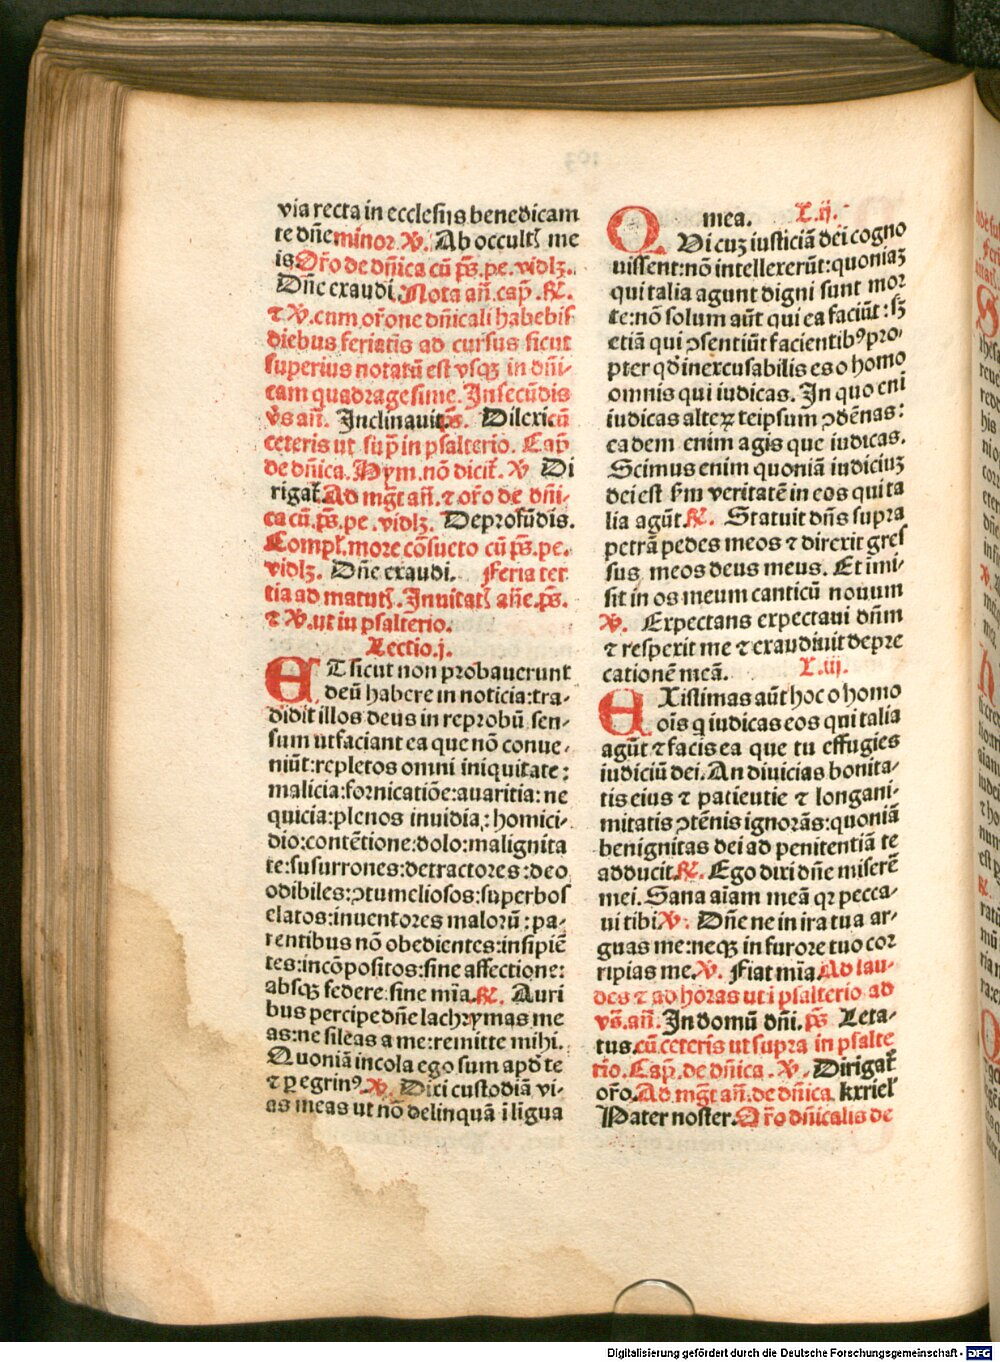 via recta in ecclesijs benedicam
te dñe minor ℣. Ab occultꝭ me
is. Or̃o de dñica cũ p̃s. pe. vidlꝫ.
Dñe exaudi. Nota añ. cap̃. ℟.
⁊ ℣. cum or̃one dñicali habebis
diebus feriatis ad cursus sicut
superius notatũ est vsqꝫ in dñi-
cam quadragesime. In secũdis
v̄s añ. Inclinauit. p̃s. Dilexi cũ
ceteris ut sup̃ in psalterio. Cap̃
de dñica. Hym. nõ dicit̃. ℣ Di
rigat̃. Ad mg̃t añ. ⁊ or̃o de dñi-
ca cũ. p̃s. pe. vidlꝫ. De profũdis.
Compl̃. more cõsueto cũ p̃s. pe.
vidlꝫ. Dñe exaudi. Feria ter
tia ad matutꝭ. Inuitatꝭ añe. p̃s.
⁊ ℣. ut in psalterio.
Lectio. j.
ET sicut non probauerunt
deũ habere in noticia: tra-
didit illos deus in reprobũ sen-
sum ut faciant ea que nõ conue-
niũt: repletos omni iniquitate:
malicia: fornicatiõe: auaritia: ne
quicia: plenos inuidia: homici-
dio: contẽtione: dolo: malignita
te: susurrones: detractores: deo
odibiles: ꝯtumeliosos: superbos
elatos: inuentores malorũ: pa-
rentibus nõ obedientes: insipiẽ
tes: incõpositos: sine affectione:
absqꝫ federe: sine mĩa. ℟. Auri
bus percipe dñe lachrymas me
as: ne sileas a me: remitte mihi.
Quoniã incola ego sum apd̃ te
⁊ ꝑegrinꝰ. ℣. Dixi custodiã vi-
as meas ut nõ delinquã ĩ ligua
mea. L. ij.
QVi cuꝫ iusticiã dei cogno
uissent: nõ intellexerũt: quoniaꝫ
qui talia agunt digni sunt mor
te: nõ solum aũt qui ea faciũt: sꝫ
etiã qui ꝯsentiũt facientibꝰ pro-
pter qd̃ inexcusabilis es o homo
omnis qui iudicas. In quo eni
iudicas alteꝝ teipsum ꝯdẽnas:
eadem enim agis que iudicas.
Scimus enim quoniã iudiciuꝫ
dei est s̃m veritatẽ in eos qui ta
lia agũt. ℟. Statuit dñs supra
petrã pedes meos ⁊ direxit gres
sus meos deus meus. Et ĩmi-
sit in os meum canticũ nouum
℣. Expectans expectaui dñm
⁊ respexit me ⁊ exaudiuit depre
cationẽ meã. L. iij.
EXistimas aũt hoc o homo
oĩs q iudicas eos qui talia
agũt ⁊ facis ea que tu effugies
iudiciũ dei. An diuicias bonita-
tis eius ⁊ patientie ⁊ longani-
mitatis ꝯtẽnis ignorãs: quoniã
benignitas dei ad penitentiã te
adducit. ℟. Ego dixi dñe miserẽ
mei. Sana aĩam meã qꝛ pecca-
ui tibi ℣. Dñe ne in ira tua ar-
guas me: neqꝫ in furore tuo cor
ripias me. ℣. Fiat mĩa. Ad lau-
des ⁊ ad horas ut i psalterio ad
vs̃. añ. In domũ dñi. p̃s Leta-
tus. cũ ceteris ut supra in psalte
rio. Cap̃. de dñica. ℣. Dirigat̃
or̃o. Ad mg̃t añ. de dñica. kxriel̃
Pater noster. Or̃o dñicalis de
Digitalisierung gefördert durch die Deutsche Forschungsgemeinschaft - DFG